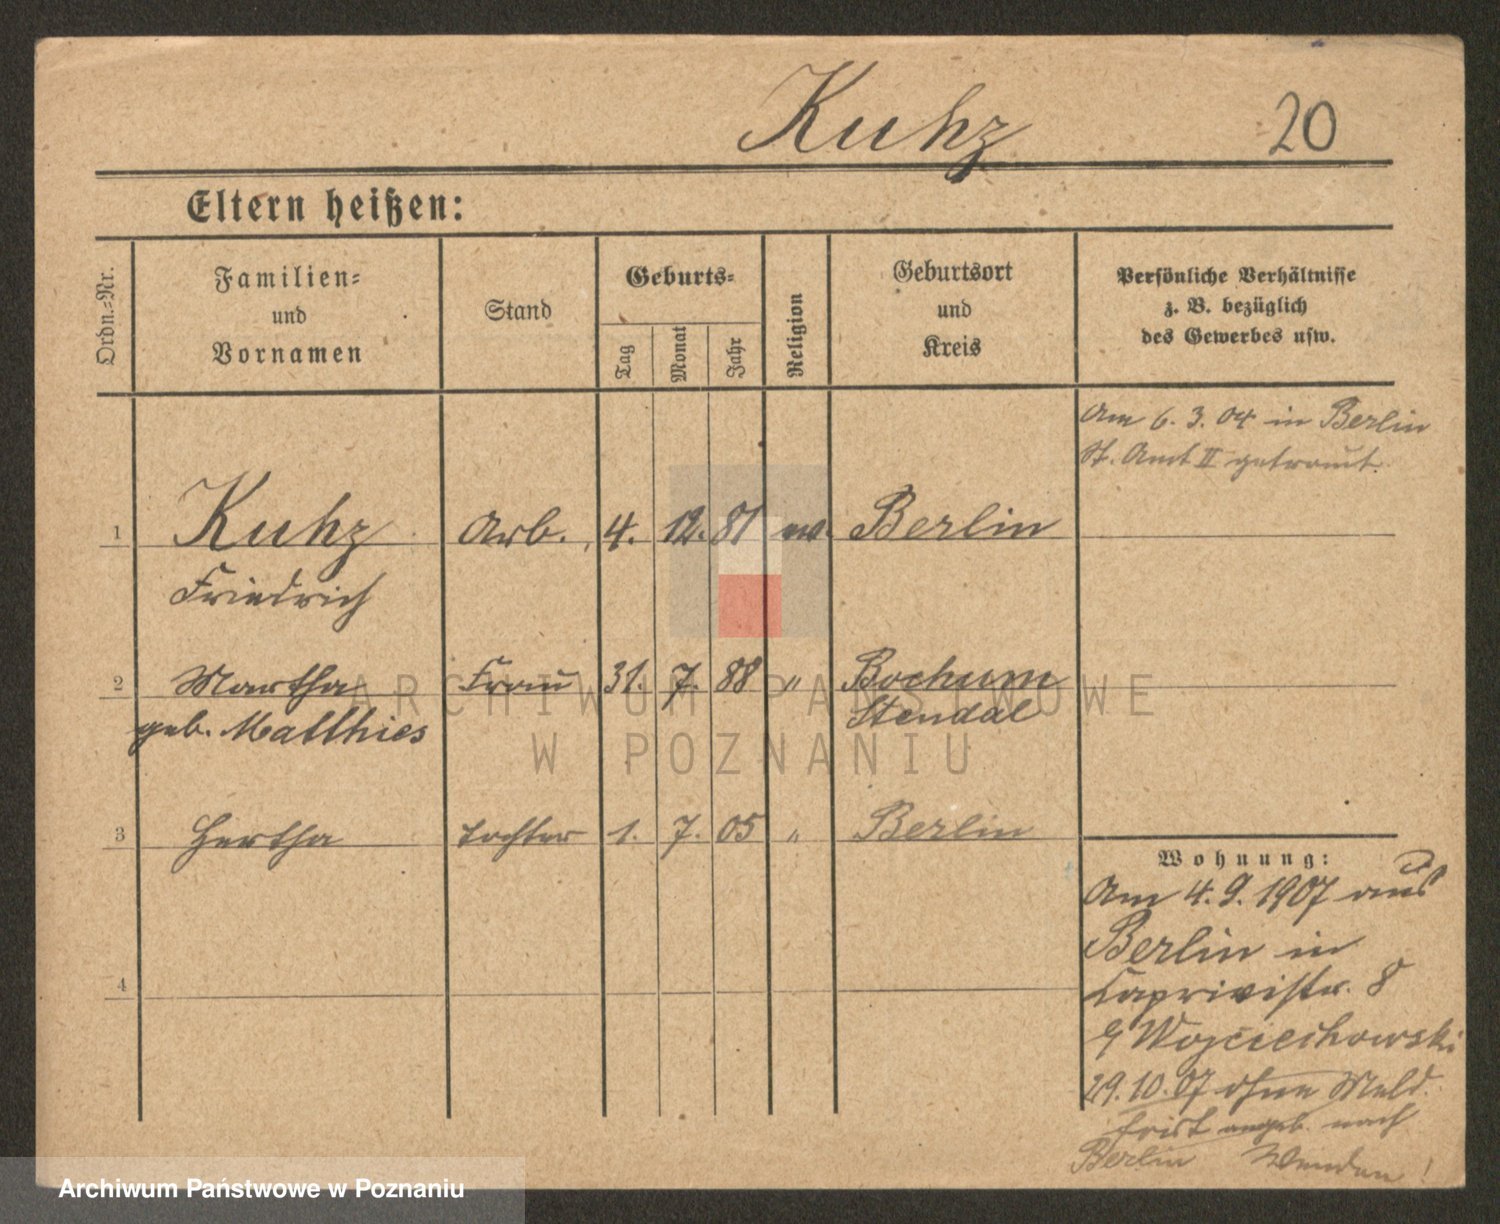 Kuhz 20
Eltern heißen:
Ordn.-Nr.
Familien-
und
Vornamen
Stand
Geburts-
Tag
Monat
Jahr
Religion
Geburtsort
und
Kreis
Persönliche Verhältnisse
z. B. bezüglich
des Gewerbes usw.
Am 6. 3. 04 in Berlin
St. Amt II getraut.
1 Kuhz Arb. 4. 12. 81 ev. Berlin
Friedrich
2 Martha Frau 31. 7. 88 " Bochum
geb. Matthies Stendal
3 Hertha Tochter 1. 7. 05 " Berlin
4
Wohnung:
Am 4. 9. 1907 aus
Berlin in
Caprivistr. 8
Wojciechowski
29. 10. 07 ohne Meld.
angeb. nach
Berlin Wenden!
ARCHIWUM PAŃSTWOWE
W POZNANIU
Archiwum Państwowe w Poznaniu